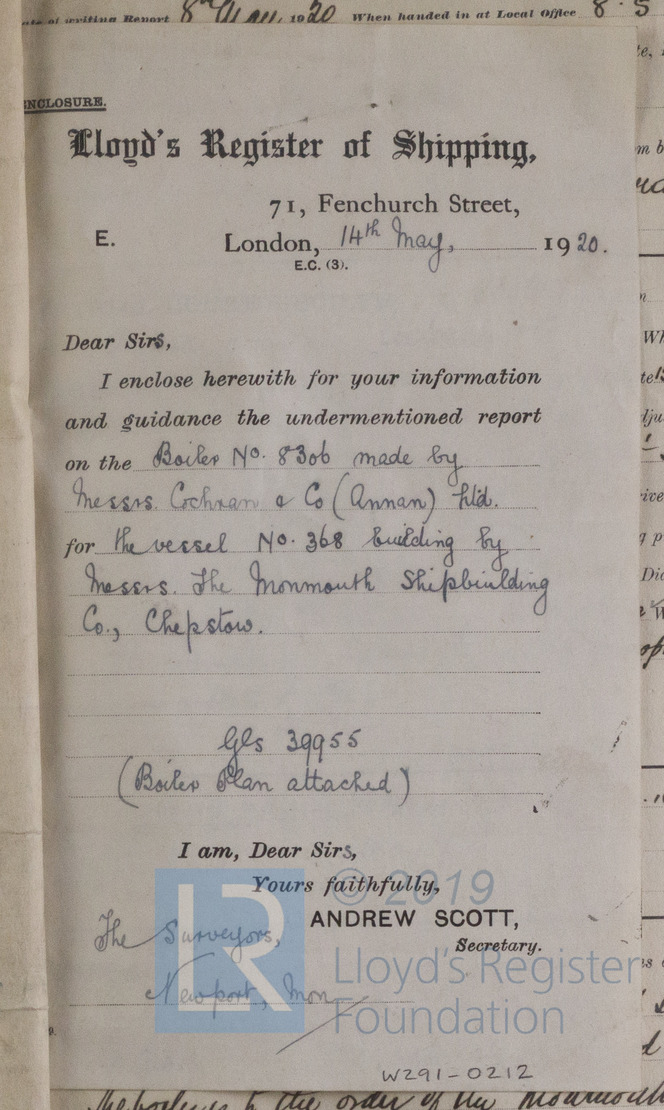 ate of writing Report 8th May 1920 When handed in at Local Office 8.5
ENCLOSURE.
Lloyd's Register of Shipping,
71, Fenchurch Street,
E.
London, 14th May, 1920.
E.C. (3).
Dear Sirs,
I enclose herewith for your information
and guidance the undermentioned report
on the Boiler No. 8306 made by
Messrs. Cochran & Co (Annan) Ltd.
for the vessel No. 368 building by
Messrs. The Monmouth Shipbuilding
Co., Chepstow.
Gls 39955
(Boiler Plan attached)
I am, Dear Sirs,
Yours faithfully,
ANDREW SCOTT,
Secretary.
The Surveyors,
Newport, Mon
© 2019
LR
Lloyd's Register
Foundation
W291-0212
to the order of the Monmouth